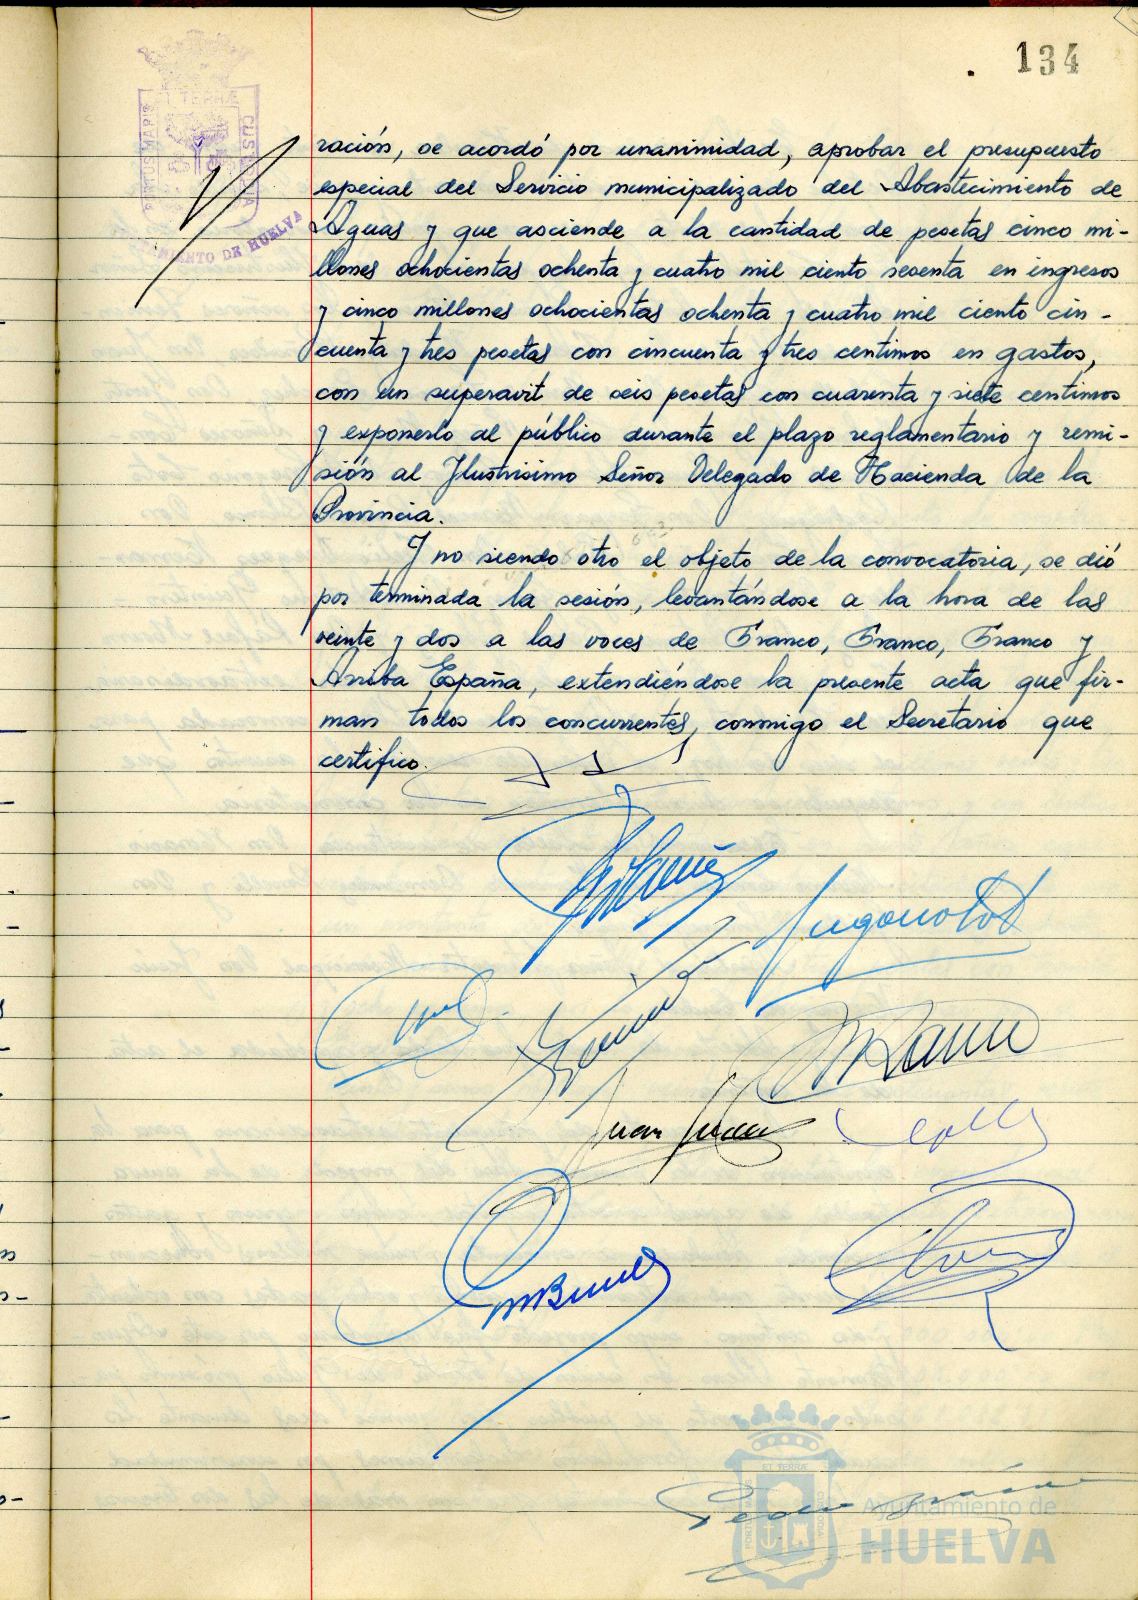 134
PORTUS MARIS
ET TERRÆ
CUSTODIA
AYUNTAMIENTO DE HUELVA
ración, se acordó por unanimidad, aprobar el presupuesto
especial del Servicio municipalizado del Abastecimiento de
Aguas y que asciende a la cantidad de pesetas cinco mi-
llones ochocientas ochenta y cuatro mil ciento sesenta en ingresos
y cinco millones ochocientas ochenta y cuatro mil ciento cin-
cuenta y tres pesetas con cincuenta y tres centimos en gastos,
con un superavit de seis pesetas con cuarenta y siete centimos
y exponerlo al público durante el plazo reglamentario y remi-
sión al Ilustrisimo Señor Delegado de Hacienda de la
Provincia.
Y no siendo otro el objeto de la convocatoria, se dió
por terminada la sesión, levantándose a la hora de las
veinte y dos a las voces de Franco, Franco, Franco y
Arriba España, extendiéndose la presente acta que fir-
man todos los concurrentes, conmigo el Secretario que
certifico.
Juan
Pedro
ET TERRÆ
PORTUS MARIS
CUSTODIA
Ayuntamiento de
HUELVA